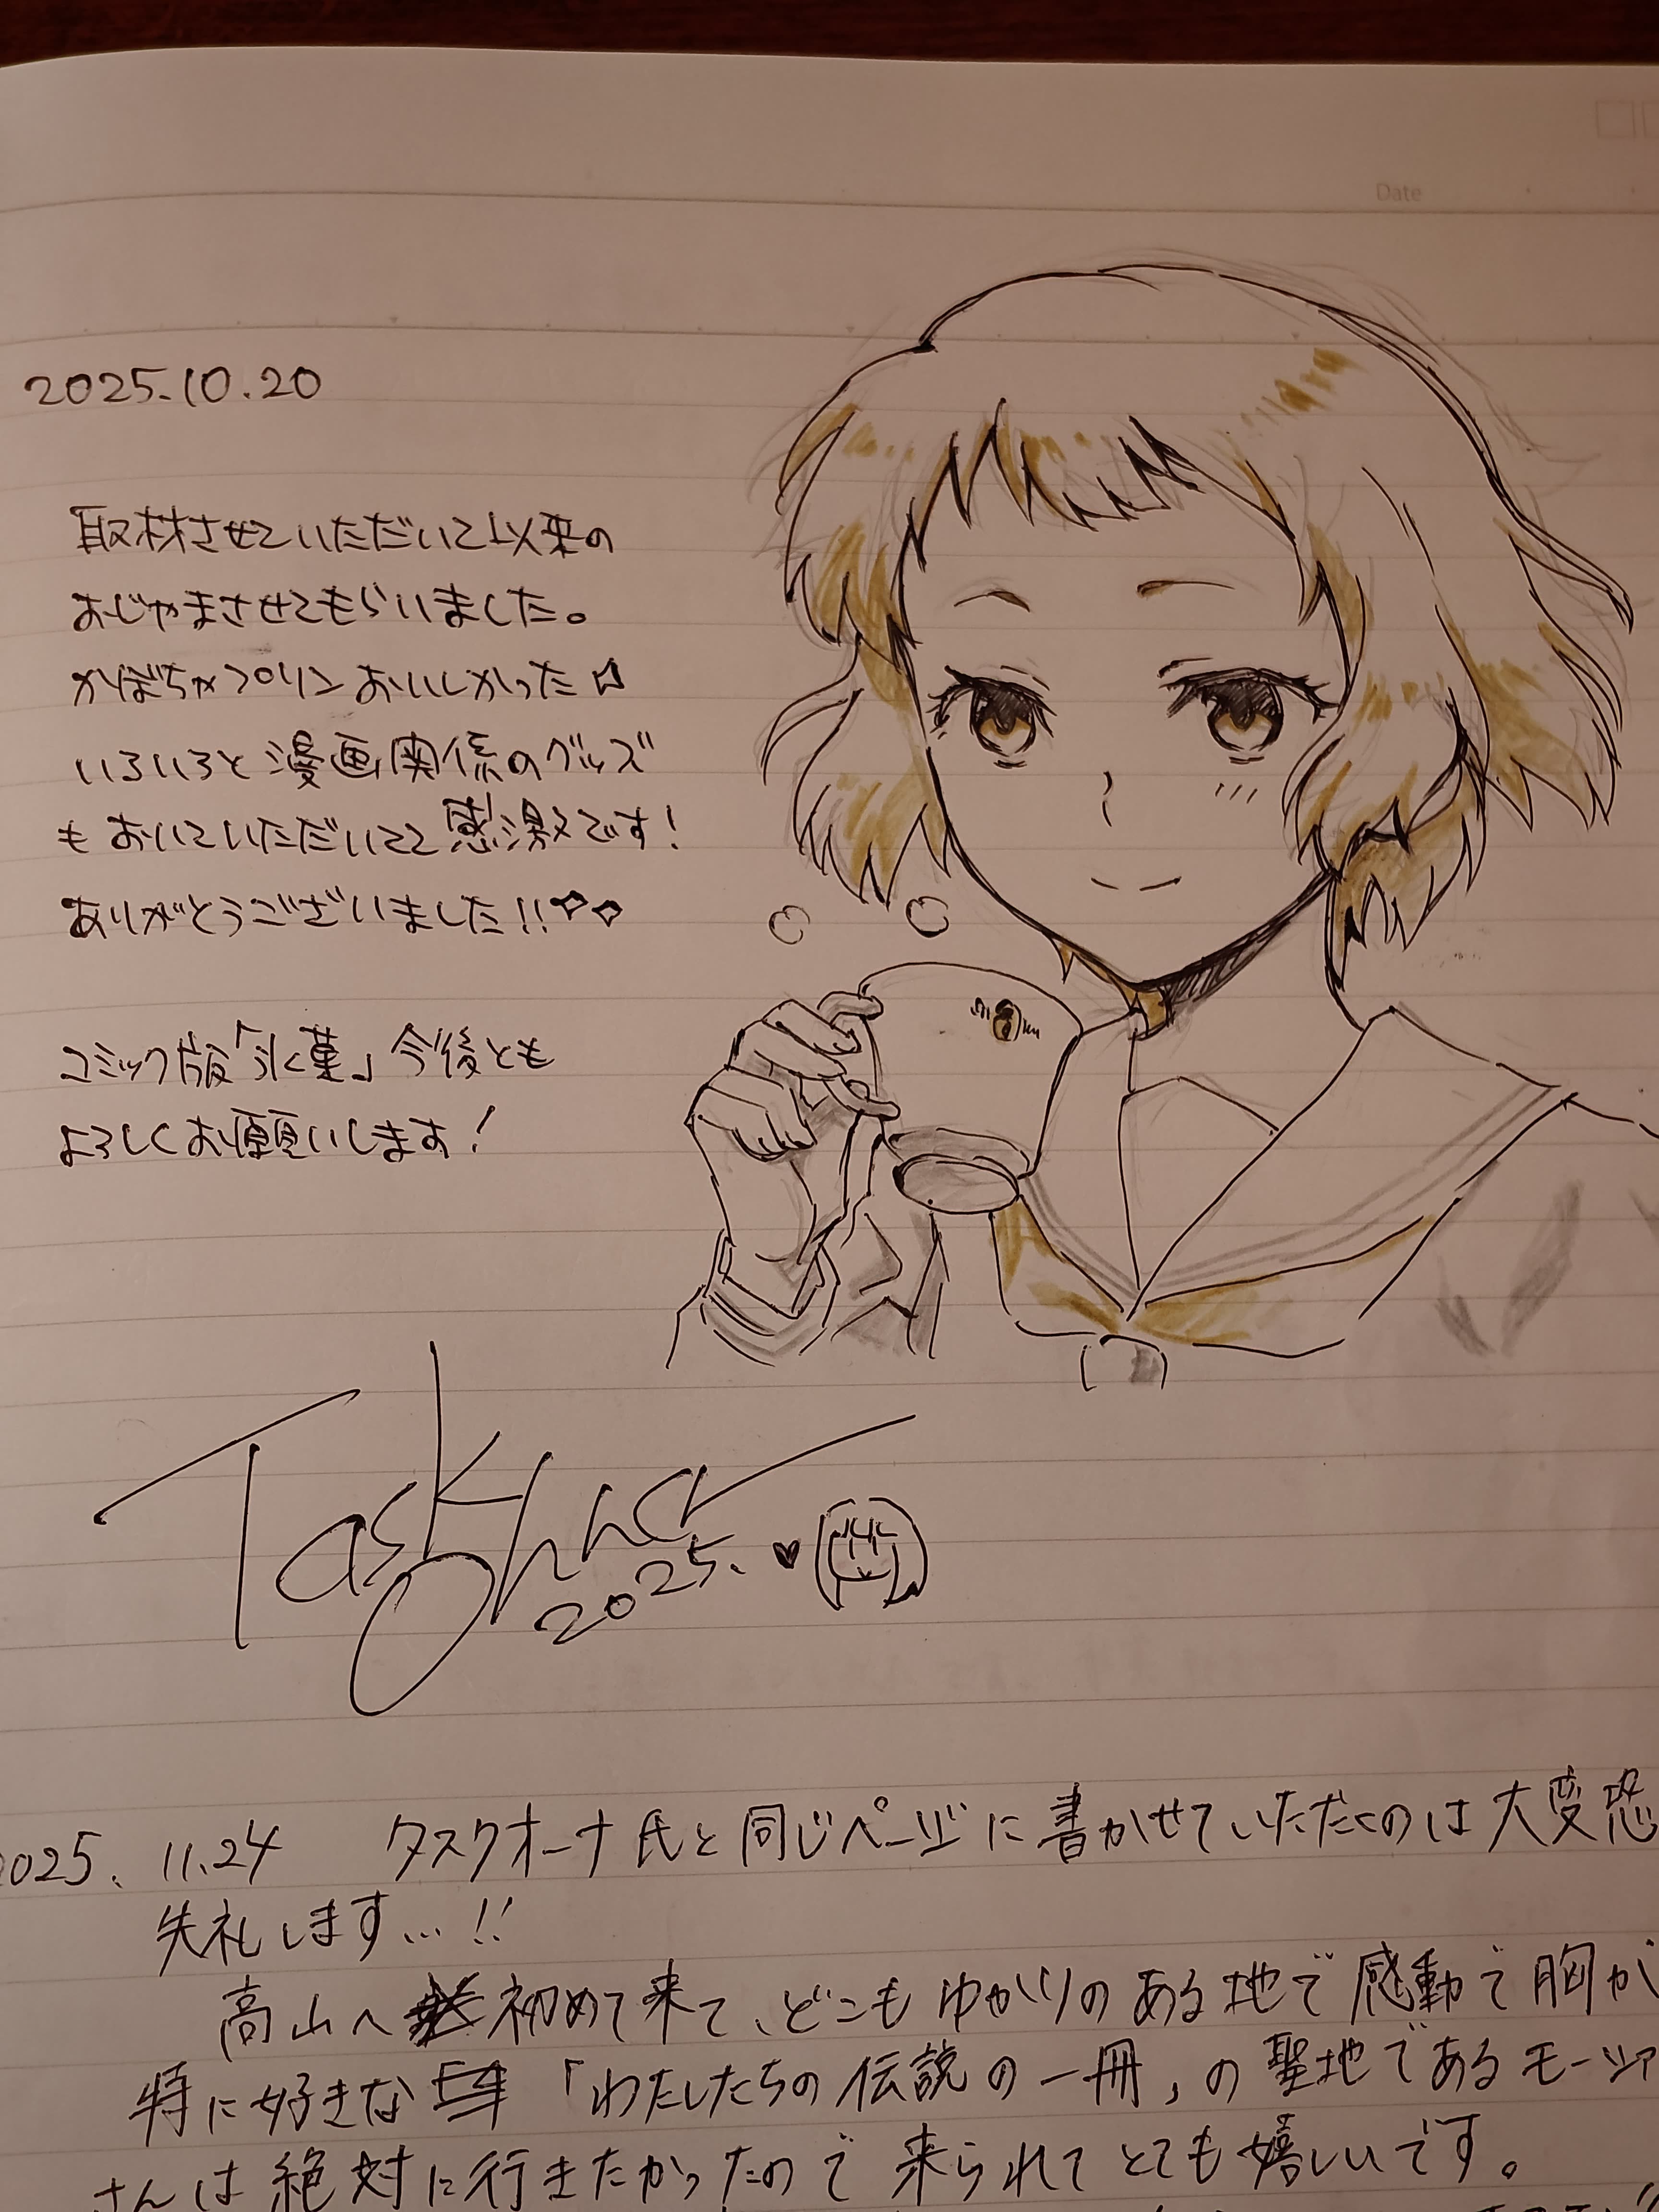 Date
2025.10.20
取材させていただいて以来の
おじゃまさせてもらいました。
かぼちゃプリンおいしかった
いろいろと漫画関係のグッズ
もおいていただいてて感激です!
ありがとうございました!!
コミック版「氷菓」今後とも
よろしくお願いします!
Task Ohna
2025.
2025. 11.24 タスクオーナ氏と同じページに書かせていただくのは大変恐
失礼します...!!
高山へ初めて来て、どこもゆかりのある地で感動で胸が
特に好きな「わたしたちの伝説の一冊」の聖地であるモーツァ
さんは絶対に行きたかったので来られてとても嬉しいです。